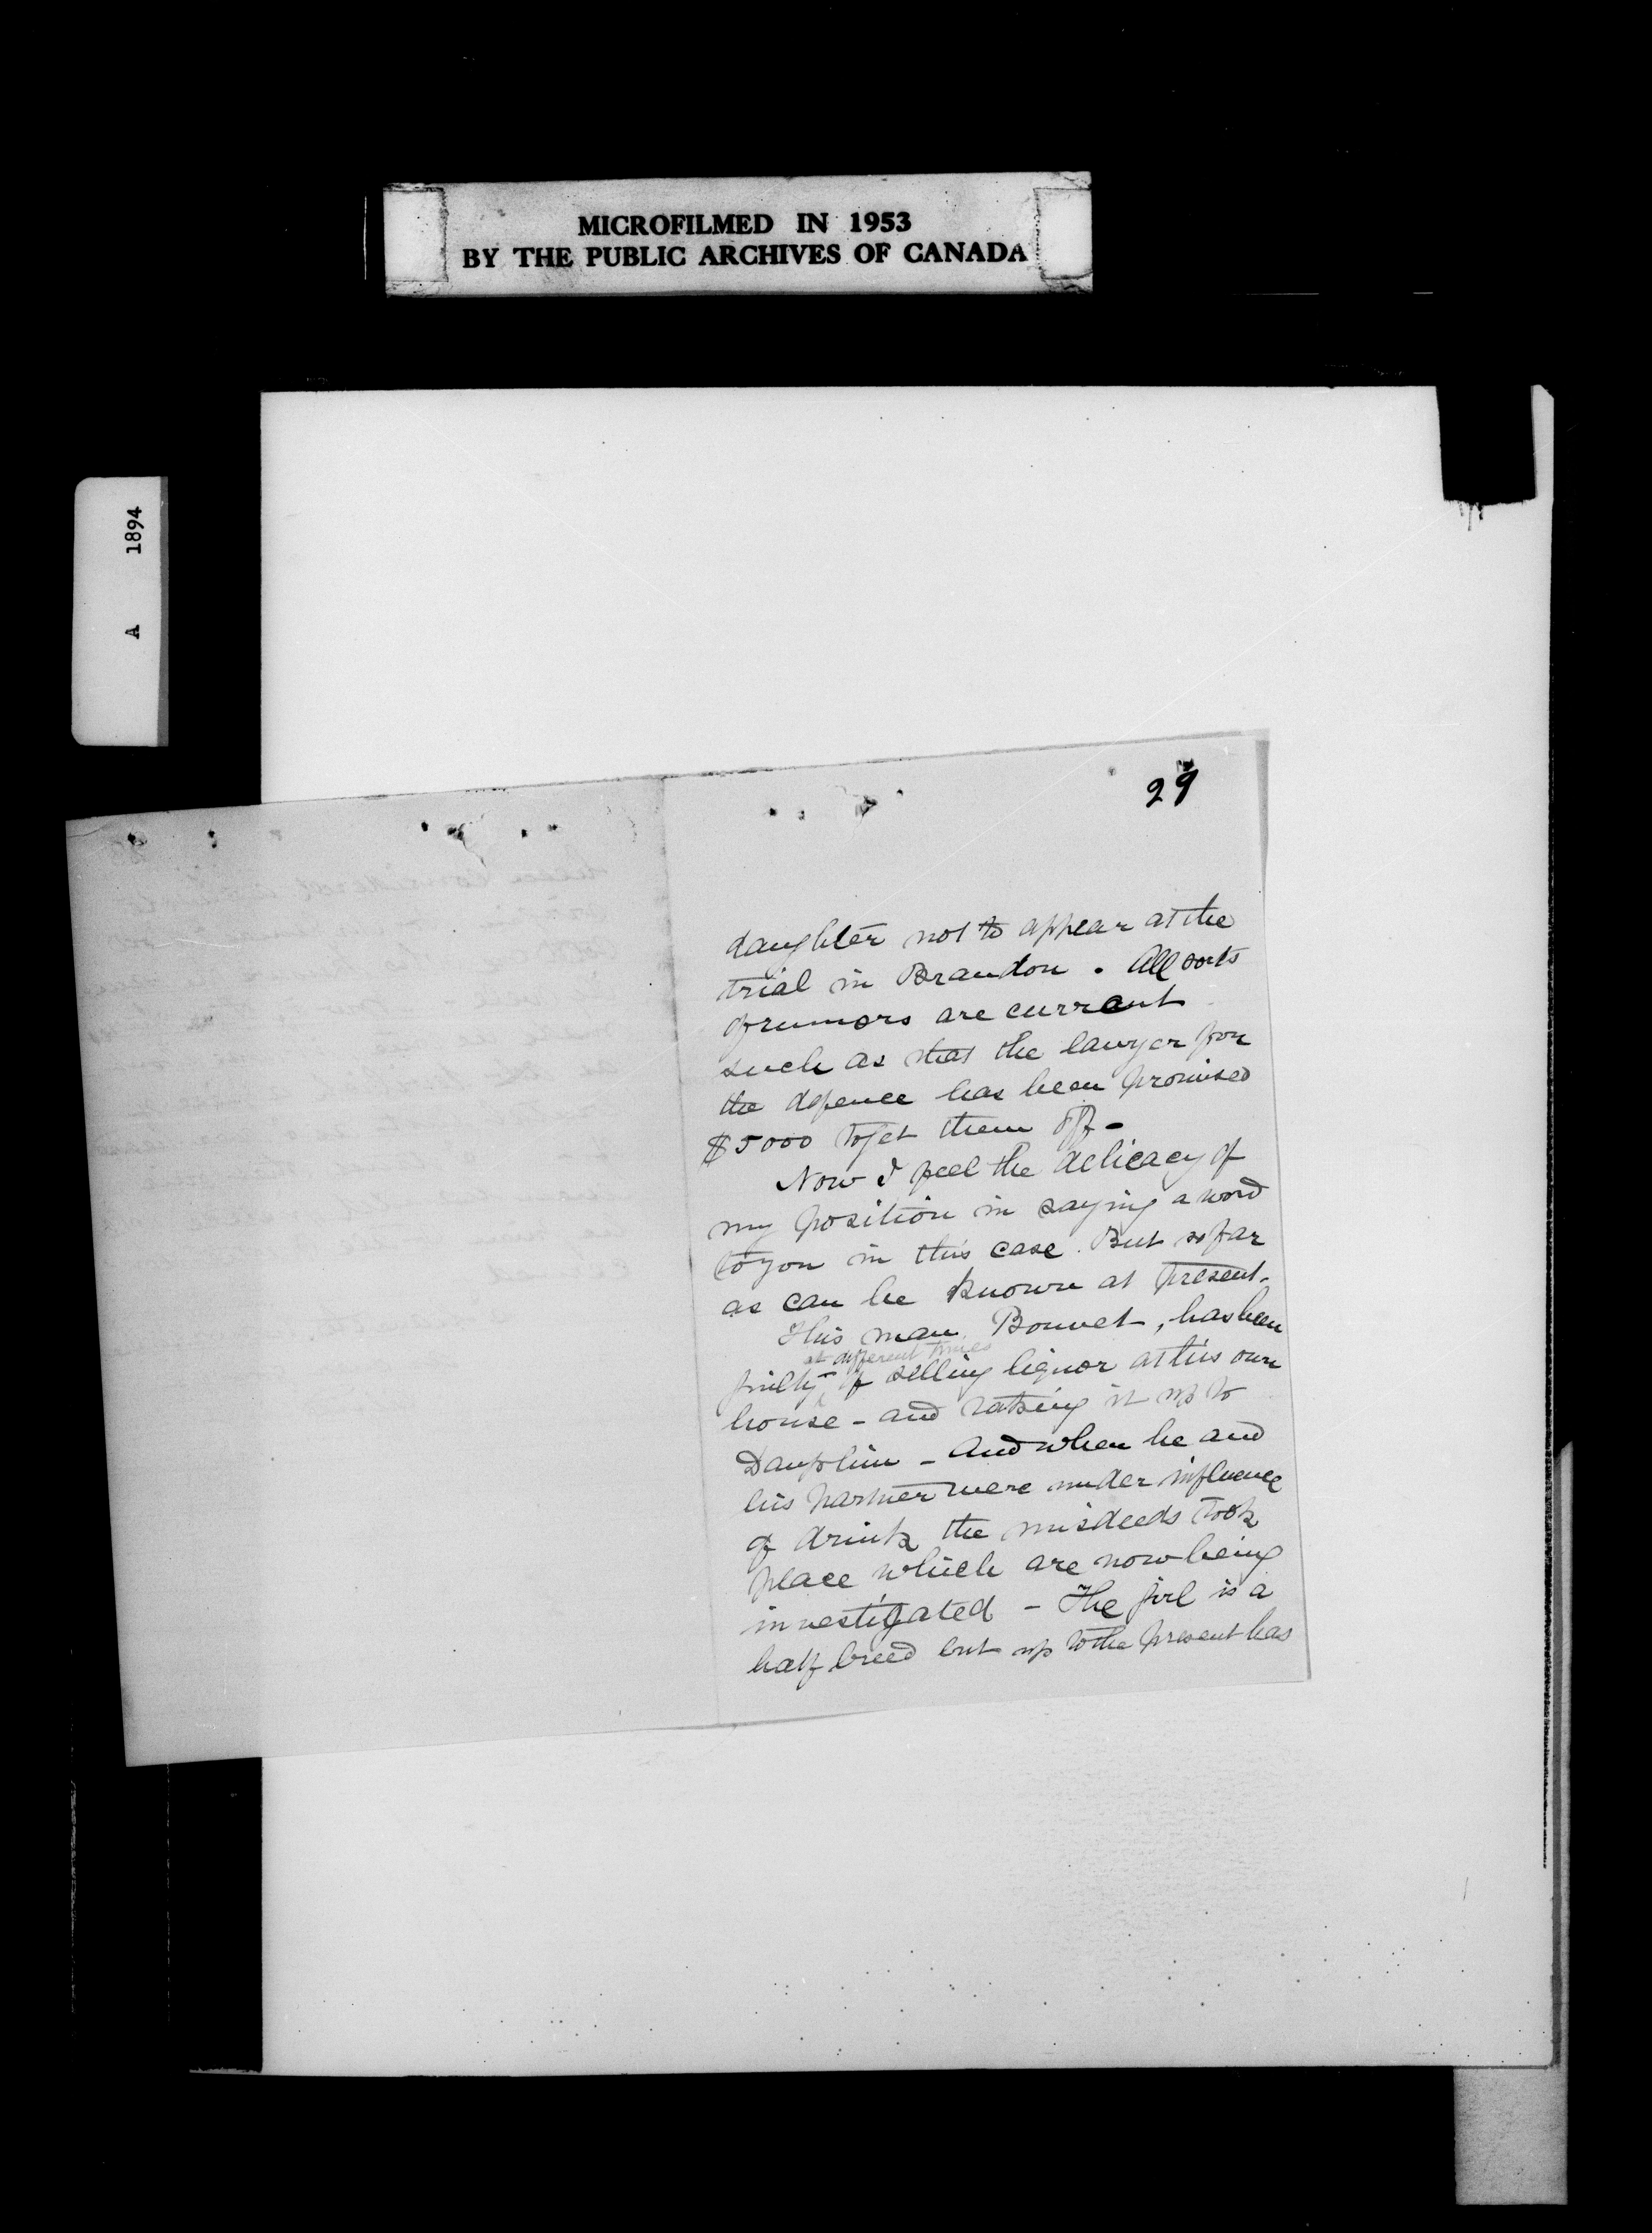 MICROFILMED IN 1953
BY THE PUBLIC ARCHIVES OF CANADA
A 1894
29
daughter not to appear at the
trial in Brandon. All sorts
of rumors are current
such as that the lawyer for
the defence has been promised
$5000 to get them off -
Now I feel the delicacy of
my position in saying a word
to you in this case. But so far
as can be known at present -
This man Bonvet, has been
at different times
guilty of selling liquor at his own
house - and taking it up to
Dauphin - And when he and
his partner were under influence
of drink the misdeeds took
place which are now being
investigated - The girl is a
half breed but up to the present has